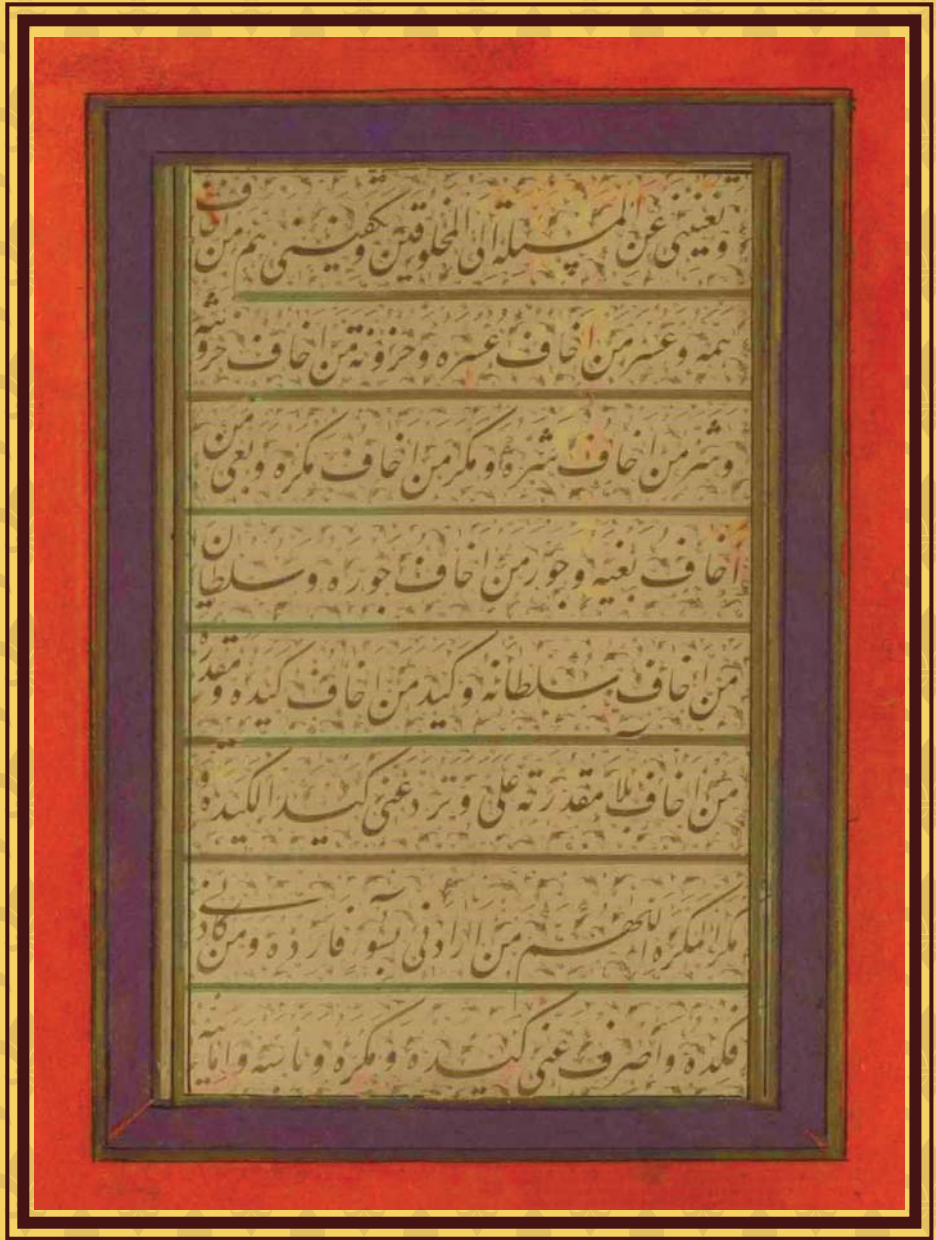 وتغنینی عن المسئلة الی المخلوقین وتکفینی هم من اخاف
همه وعسر من اخاف عسره وحزونة من اخاف حزونته
وشر من اخاف شره و مکر من اخاف مکره وبغی من
اخاف بغیه وجور من اخاف جوره وسلطان
من اخاف سلطانه وکید من اخاف کیده ومقدرة
من اخاف بلاء مقدرته علی وترد عنی کید الکیدة و
مکر المکره اللهم من ارادنی بسوء فارده ومن کادنی
فکده واصرف عنی کیده ومکره وبأسه وامانیه